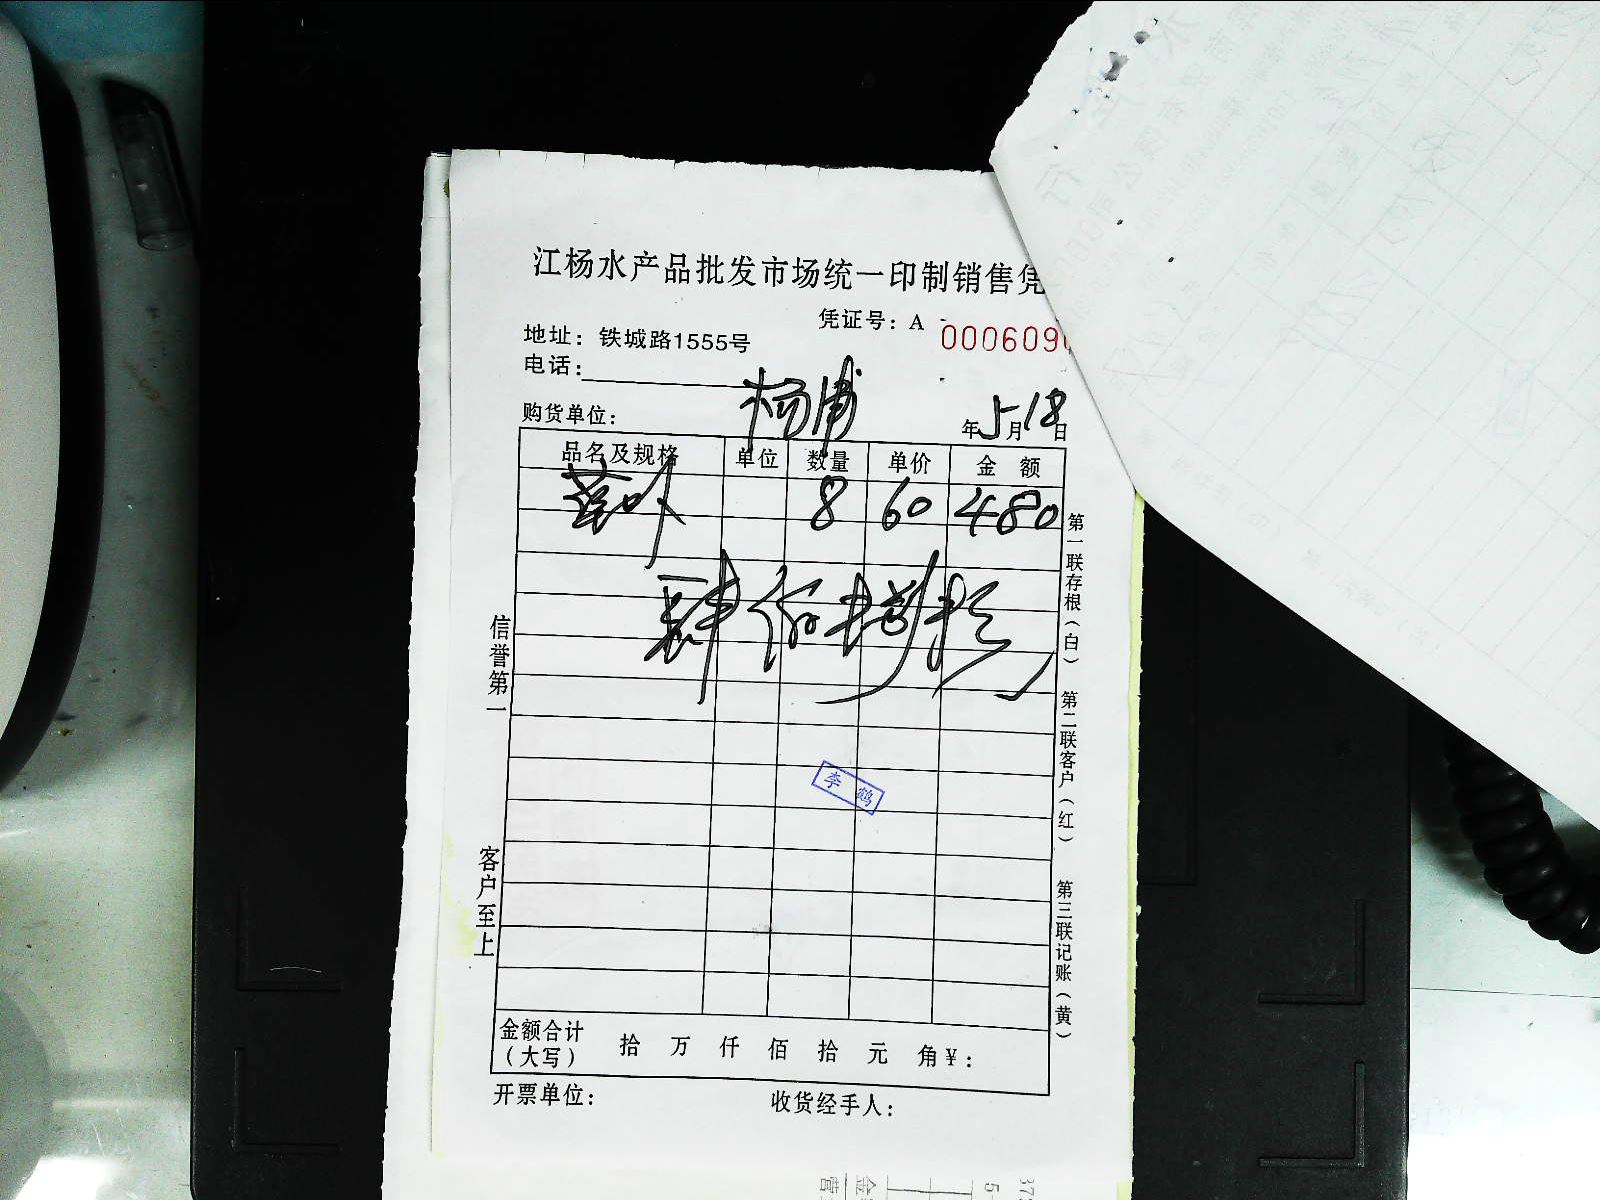 江杨水产品批发市场统一印制销售凭
凭证号：A 000609
地址：铁城路1555号
电话：
购货单位： 杨浦 年5月18日
品名及规格 单位 数量 单价 金额
8 60 480
肆佰捌拾
李鹤
信誉第一
客户至上
第一联存根（白）
第二联客户（红）
第三联记账（黄）
金额合计（大写） 拾 万 仟 佰 拾 元 角 ¥：
开票单位： 收货经手人：